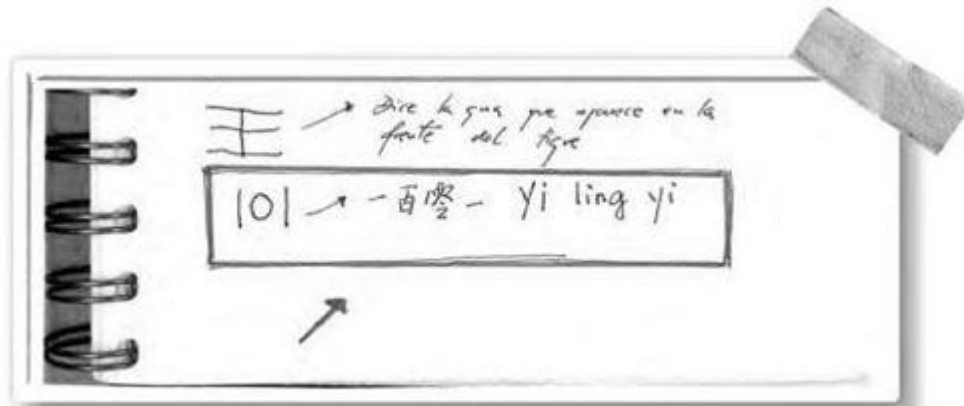 王 → Dice la guia que aparece en la
frente del tigre
101 → 一百零一 yi ling yi